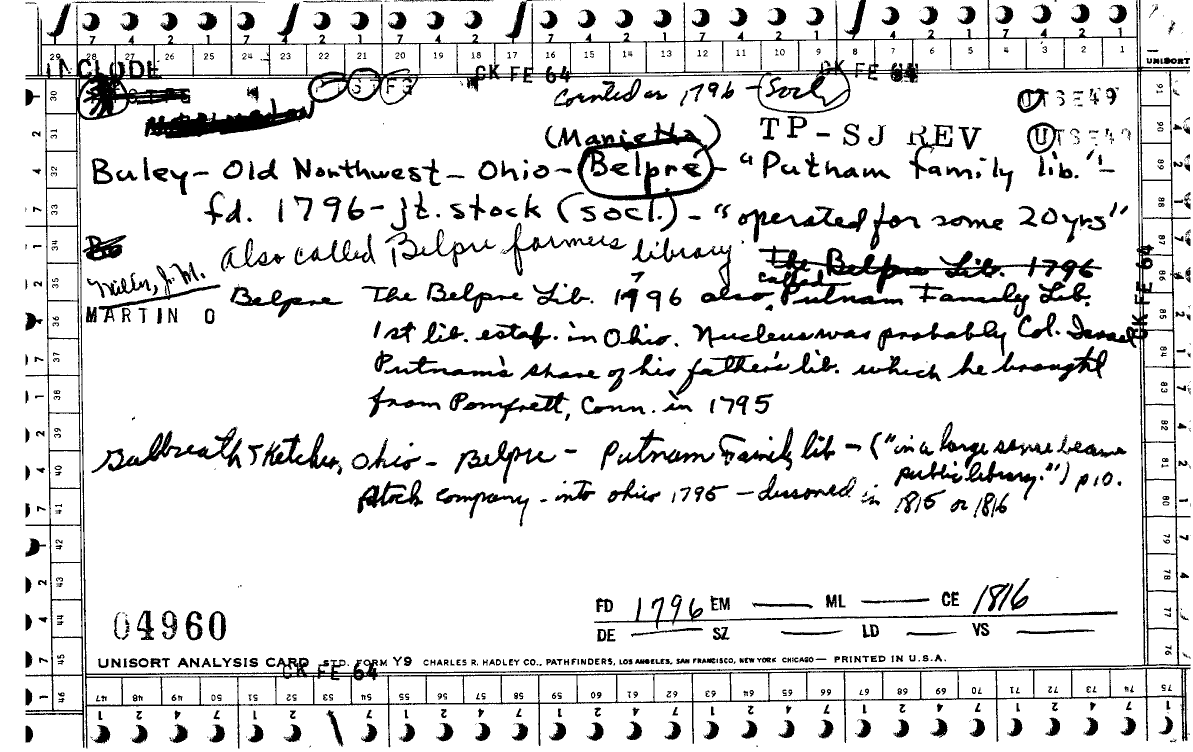 7 4 2 1 7 4 2 1 7 4 2 1 7 4 2 1 7 4 2 1 7 4 2 1 7 4 2 1
29 28 27 26 25 24 23 22 21 20 19 18 17 16 15 14 13 12 11 10 9 8 7 6 5 4 3 2 1
UNISORT
INCLUDE
CK FE 64 CK FE 64
S T F G
Counted as 1796 - Socl
UTSE49
(Marietta) TP-SJ REV UTSE49
Buley - Old Northwest - Ohio - Belpré - "Putnam Family lib." -
fd. 1796 - jt. stock (socl.) - "operated for some 20 yrs"
Also called Belpre farmers library
The Belpre Lib. 1796
called
Belpre The Belpre Lib. 1796 also Putnam Family Lib.
MARTIN O
1st lib. estab. in Ohio. Nucleus was probably Col. Israel
Putnam's share of his father's lib. which he brought
from Pomfrett, Conn. in 1795
Galbreath Sketches, Ohio - Belpre - Putnam Family lib - ("in a large sense became
public library.") p10.
Stock company - into Ohio 1795 - dissolved in 1815 or 1816
CK FE 64
FD 1796 EM ML CE 1816
DE SZ LD VS
04960
UNISORT ANALYSIS CARD STD. FORM Y9 CHARLES R. HADLEY CO., PATHFINDERS, LOS ANGELES, SAN FRANCISCO, NEW YORK CHICAGO — PRINTED IN U.S.A.
CK FE 64
47 48 49 50 51 52 53 54 55 56 57 58 59 60 61 62 63 64 65 66 67 68 69 70 71 72 73 74 75
1 2 4 7 1 2 4 7 1 2 4 7 1 2 4 7 1 2 4 7 1 2 4 7 1 2 4 7